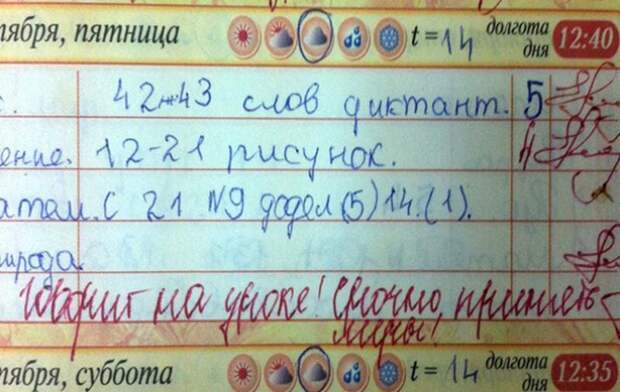 тября, пятница t = 14 долгота дня 12:40
с. 42-43 слов диктант. 5
ение. 12-21 рисунок. 4
атем. с 21 №9 додел (5) 14.(1).
природа.
Говорит на уроке! Срочно, примете
меры!
тября, суббота t = 14 долгота дня 12:35